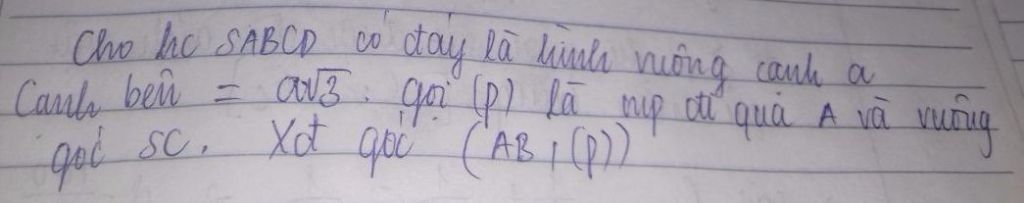 Cho hc SABCD có đáy là hình vuông cạnh a
Cạnh bên = a√3. gọi (P) là mp đi qua A và vuông
góc SC. Xđ góc (AB, (P))